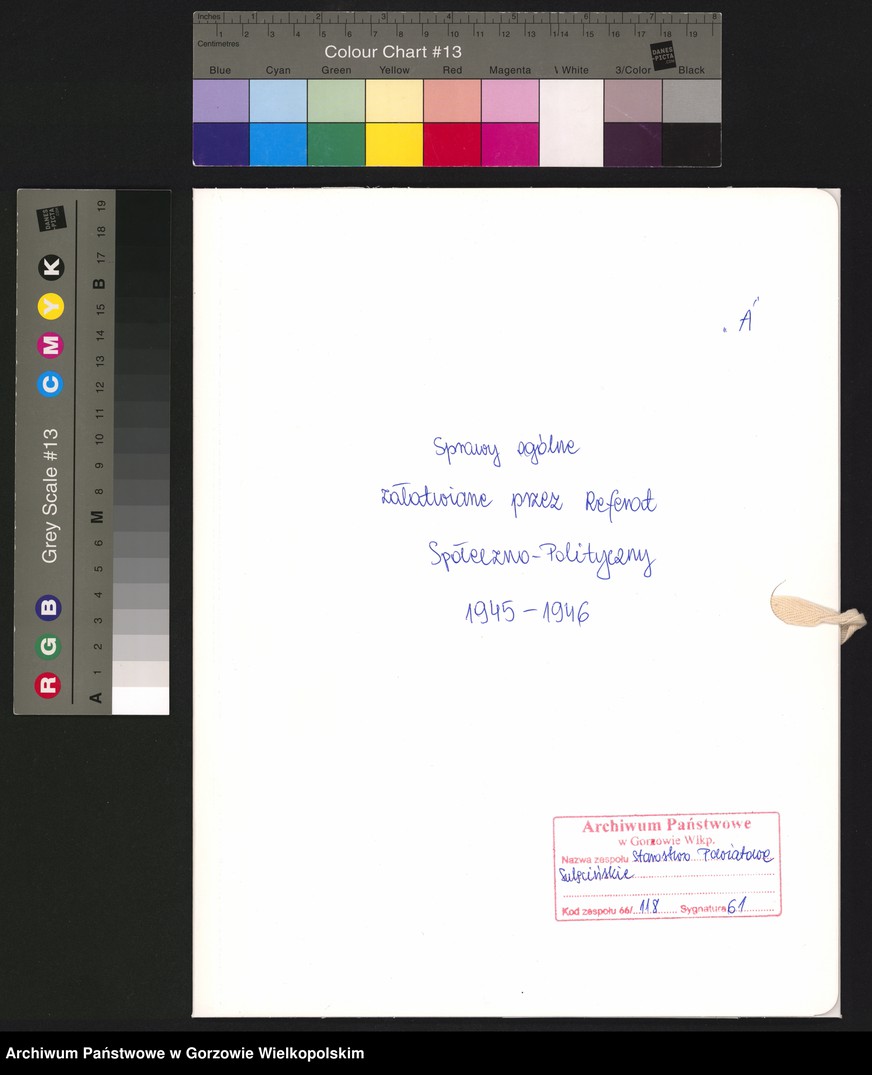 Inches 1 2 3 4 5 6 7 8
1 2 3 4 5 6 7 8 9 10 11 12 13 14 15 16 17 18 19
Centimetres
Colour Chart #13
DANES
-PICTA
.COM
Blue Cyan Green Yellow Red Magenta White 3/Color Black
DANES
-PICTA
.COM
R G B Grey Scale #13 C M Y K
A 1 2 3 4 5 6 M 8 9 10 11 12 13 14 15 B 17 18 19
„A"
Sprawy ogólne
załatwiane przez Referat
Społeczno-Polityczny
1945 – 1946
Archiwum Państwowe
w Gorzowie Wlkp.
Nazwa zespołu Starostwo Powiatowe
Sulęcińskie
Kod zespołu 66/ 118 Sygnatura 61
Archiwum Państwowe w Gorzowie Wielkopolskim